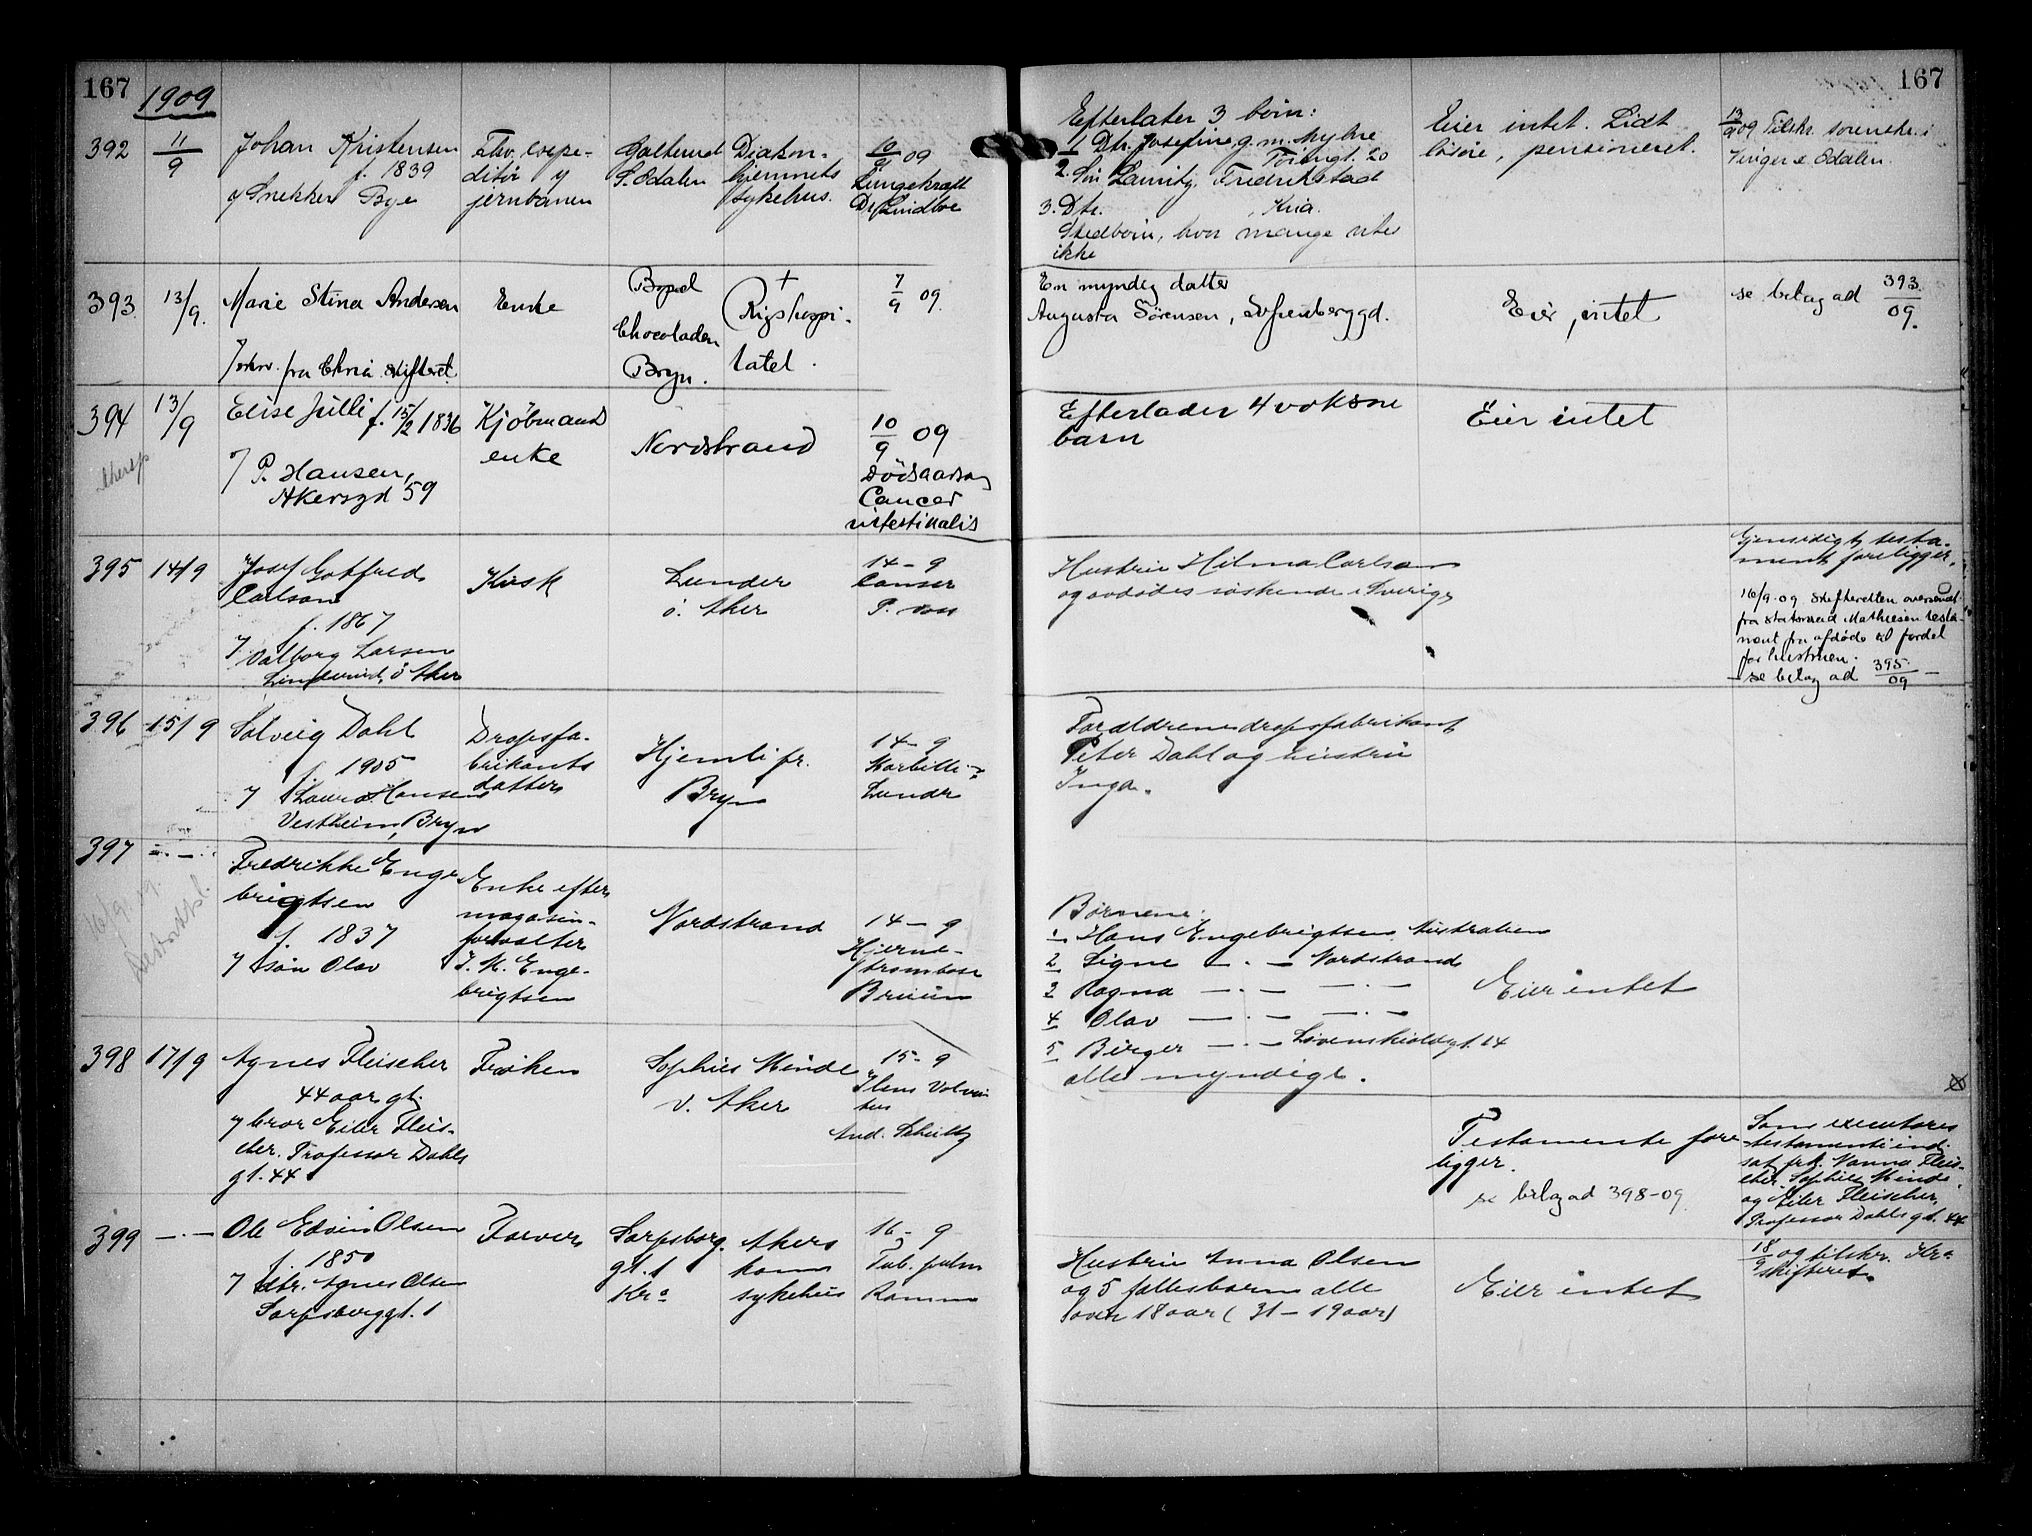 167
1909
167
392
11/9
Johan Kristensen
f. 1839
Snekker Bye
Fhv. expe-
ditør v
jernbanen
Galterud
S. Odalen
Diakon-
hjemmets
sykehus.
10/9 09
Lungekræft
Dr. Lindboe
Efterlater 3 børn:
1. Dtr. Josefine, g. m. Myhre
Tøiengt. 20
2. Søn Lauritz, Fredrikstad
3. Dtr. , Kria.
Stedbørn, hvor mange vites
ikke
Eier intet. Lidt
løsøre, pensioneret.
13/9 09 Tilskr. sorenskr. i
Vinger & Odalen.
393
13/9.
Marie Stina Andersen
fra Chria skifteret.
Enke
Chocoladen
Bryn.
+
Rigshospi-
talet.
7/9 09.
En myndig datter
Augusta Sørensen, Sofienberggd.
Eier intet
se bilag ad 393./09.
394
13/9
Elise Julli f. 15/2 1836
P. Hansen,
Akersgd 59
Kjøbmands
enke
Nordstrand
10/9 09
Dødsaarsag
Cancer
intestinalis
Efterlader 4 voksne
barn
Eier intet
395
14/9
Josef Gotfred
Carlson
f. 1867
Valborg Larsen
Linderud, ö Aker
Kusk
Lunder
ö. Aker
14-9
Canser
P.
Hustru Hilma Carlson
og avdødes søskende i Sverige
Gjensidigt testa-
ment foreligger.
16/9.09 skifteretten oversendt
fra statsraad Mathiesen testa-
ment fra afdøde til fordel
for hustruen.
- se bilag ad 395./09 -
396
15/9
Solveig Dahl
f. 1905
Laura Hansen
Vestheim, Bryn
Dropsfa-
brikants
datter
Hjemli pr.
Bryn
14-9
Lunde
Forældrene dropsfabrikant
Peter Dahl og hustru
Inga.
397
- . -
Fredrikke Enge
brigtsen
f. 1837
søn Olav
Enke efter
magasin-
forvalter
J. M. Enge-
brigtsen
Nordstrand
14-9
Hjerne-
trombose
Bruun
Børnene:
1 Hans Engebrigtsen Australien
2 Signe - . - Nordstrand
3 Ragna - . - - . -
4 Olav - . - - . -
5 Birger - . - Løvenskioldsgt. 14
alle myndige.
Eier intet
398
17/9
Agnes Fleischer
44 aar gl.
bror Eiler Fleis-
cher. Professor Dahls
gt. 44
Frøken
Sophies Minde
v. Aker
15-9
Ilens Volvu-
lus
And. Schultz
Testamente fore
ligger.
se bilag ad 398-09
Som executores
testamenti ind-
sat frk. Nanna Fleis-
cher, Sophies Minde,
og Eiler Fleischer,
Professor Dahls gt. 44
399
- . -
Ole Edvin Olsen
f. 1850
dtr. Agnes Olsen
Sarpsborggt. 1
Farver
Sarpsborg.
gt. 1
Kra
Akers
kom
sykehus
16-9
Tub. pulm
Ramm
Hustru Anna Olsen
og 5 fællesbarn alle
over 18 aar (31-19 aar)
Eier intet
18/9 og tilskr. Kra
skifteret.